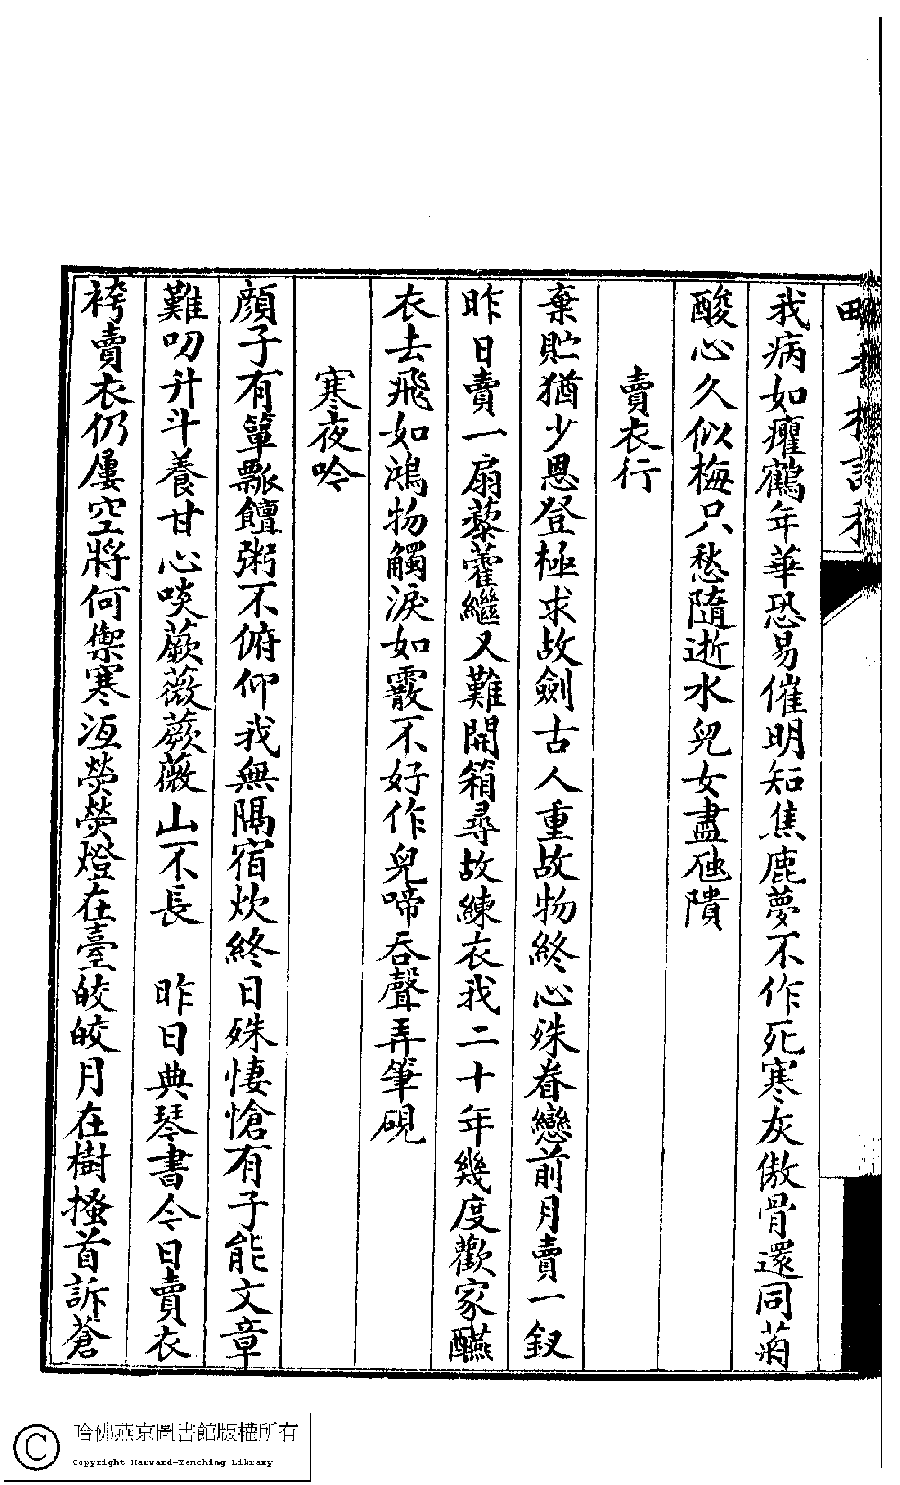 我病如癯鶴年華恐易催明知焦鹿夢不作死寒灰傲骨還同菊
酸心久似梅只愁隨逝水兒女盡虺隤
賣衣行
棄貯猶少恩登極求故劍古人重故物終心殊眷戀前月賣一釵
昨日賣一扇藜藿繼又難開箱尋故練衣我二十年幾度歡家醼
衣去飛如鴻物觸淚如霰不好作兒啼吞聲弄筆硯
寒夜吟
顔子有簞瓢饘粥不俯仰我無隔宿炊終日殊悽愴有子能文章
難叨升斗養甘心啖蕨薇蕨薇山不長　昨日典琴書今日賣衣
袴賣衣仍屢空將何禦寒沍熒熒燈在臺皎皎月在樹搔首訴蒼
哈佛燕京圖書館版權所有
Copyright Harvard-Yenching Library